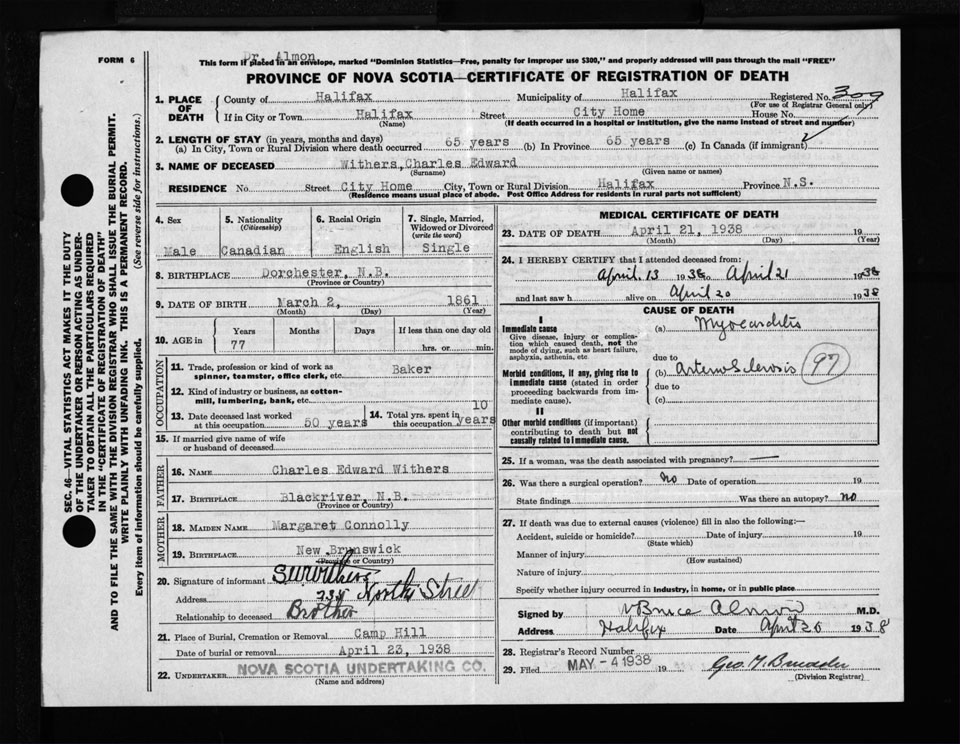 FORM 6
Dr. Almon
This form if placed in an envelope, marked "Dominion Statistics—Free, penalty for improper use $300," and properly addressed will pass through the mail "FREE"
PROVINCE OF NOVA SCOTIA—CERTIFICATE OF REGISTRATION OF DEATH
1. PLACE OF DEATH
County of Halifax Municipality of Halifax Registered No. 309
(For use of Registrar General only)
If in City or Town Halifax Street City Home House No.
(Name) (If death occurred in a hospital or institution, give the name instead of street and number)
2. LENGTH OF STAY (in years, months and days)
(a) In City, Town or Rural Division where death occurred 65 years (b) In Province 65 years (c) In Canada (if immigrant)
3. NAME OF DECEASED Withers, Charles Edward
(Surname) (Given name or names)
RESIDENCE No Street City Home City, Town or Rural Division Halifax Province N.S.
(Residence means usual place of abode. Post Office Address for residents in rural parts not sufficient)
4. Sex Male
5. Nationality (Citizenship) Canadian
6. Racial Origin English
7. Single, Married, Widowed or Divorced (write the word) Single
8. BIRTHPLACE Dorchester, N.B.
(Province or Country)
9. DATE OF BIRTH March 2, 1861
(Month) (Day) (Year)
10. AGE in Years Months Days If less than one day old
77 hrs. or min.
OCCUPATION
11. Trade, profession or kind of work as spinner, teamster, office clerk, etc. Baker
12. Kind of industry or business, as cotton-mill, lumbering, bank, etc.
13. Date deceased last worked at this occupation 50 years
14. Total yrs. spent in this occupation 10 years
15. If married give name of wife or husband of deceased
FATHER
16. NAME Charles Edward Withers
17. BIRTHPLACE Blackriver, N.B.
(Province or Country)
MOTHER
18. MAIDEN NAME Margaret Connolly
19. BIRTHPLACE New Brunswick
(Province or Country)
20. Signature of informant Withers
Address North Street
Relationship to deceased Brother
21. Place of Burial, Cremation or Removal Camp Hill
Date of burial or removal April 23, 1938
22. UNDERTAKER NOVA SCOTIA UNDERTAKING CO.
(Name and address)
MEDICAL CERTIFICATE OF DEATH
23. DATE OF DEATH April 21, 1938 19
(Month) (Day) (Year)
24. I HEREBY CERTIFY that I attended deceased from:
April 13 1938 to April 21 1938
and last saw h alive on April 20 1938
CAUSE OF DEATH
I
Immediate cause
Give disease, injury or complication which caused death, not the mode of dying, such as heart failure, asphyxia, asthenia, etc
(a) Myocarditis
due to
Morbid conditions, if any, giving rise to immediate cause (stated in order proceeding backwards from immediate cause).
(b) Arteriosclerosis 97
due to
(c)
II
Other morbid conditions (if important) contributing to death but not causally related to immediate cause.
25. If a woman, was the death associated with pregnancy? —
26. Was there a surgical operation? No Date of operation 19
State findings Was there an autopsy? No
27. If death was due to external causes (violence) fill in also the following:—
Accident, suicide or homicide? Date of injury 19
(State which)
Manner of injury
(How sustained)
Nature of injury
Specify whether injury occurred in Industry, in home, or in public place
Signed by Bruce Almon M.D.
Address Halifax Date April 26 1938
28. Registrar's Record Number
29. Filed MAY - 4 1938 19
(Division Registrar)
SEC. 46—VITAL STATISTICS ACT MAKES IT THE DUTY
OF THE UNDERTAKER OR PERSON ACTING AS UNDER-
TAKER TO OBTAIN ALL THE PARTICULARS REQUIRED
IN THE "CERTIFICATE OF REGISTRATION OF DEATH"
AND TO FILE THE SAME WITH THE DIVISION REGISTRAR WHO SHALL ISSUE THE BURIAL PERMIT.
WRITE PLAINLY WITH UNFADING INK. THIS IS A PERMANENT RECORD.
Every item of information should be carefully supplied. (See reverse side for instructions.)